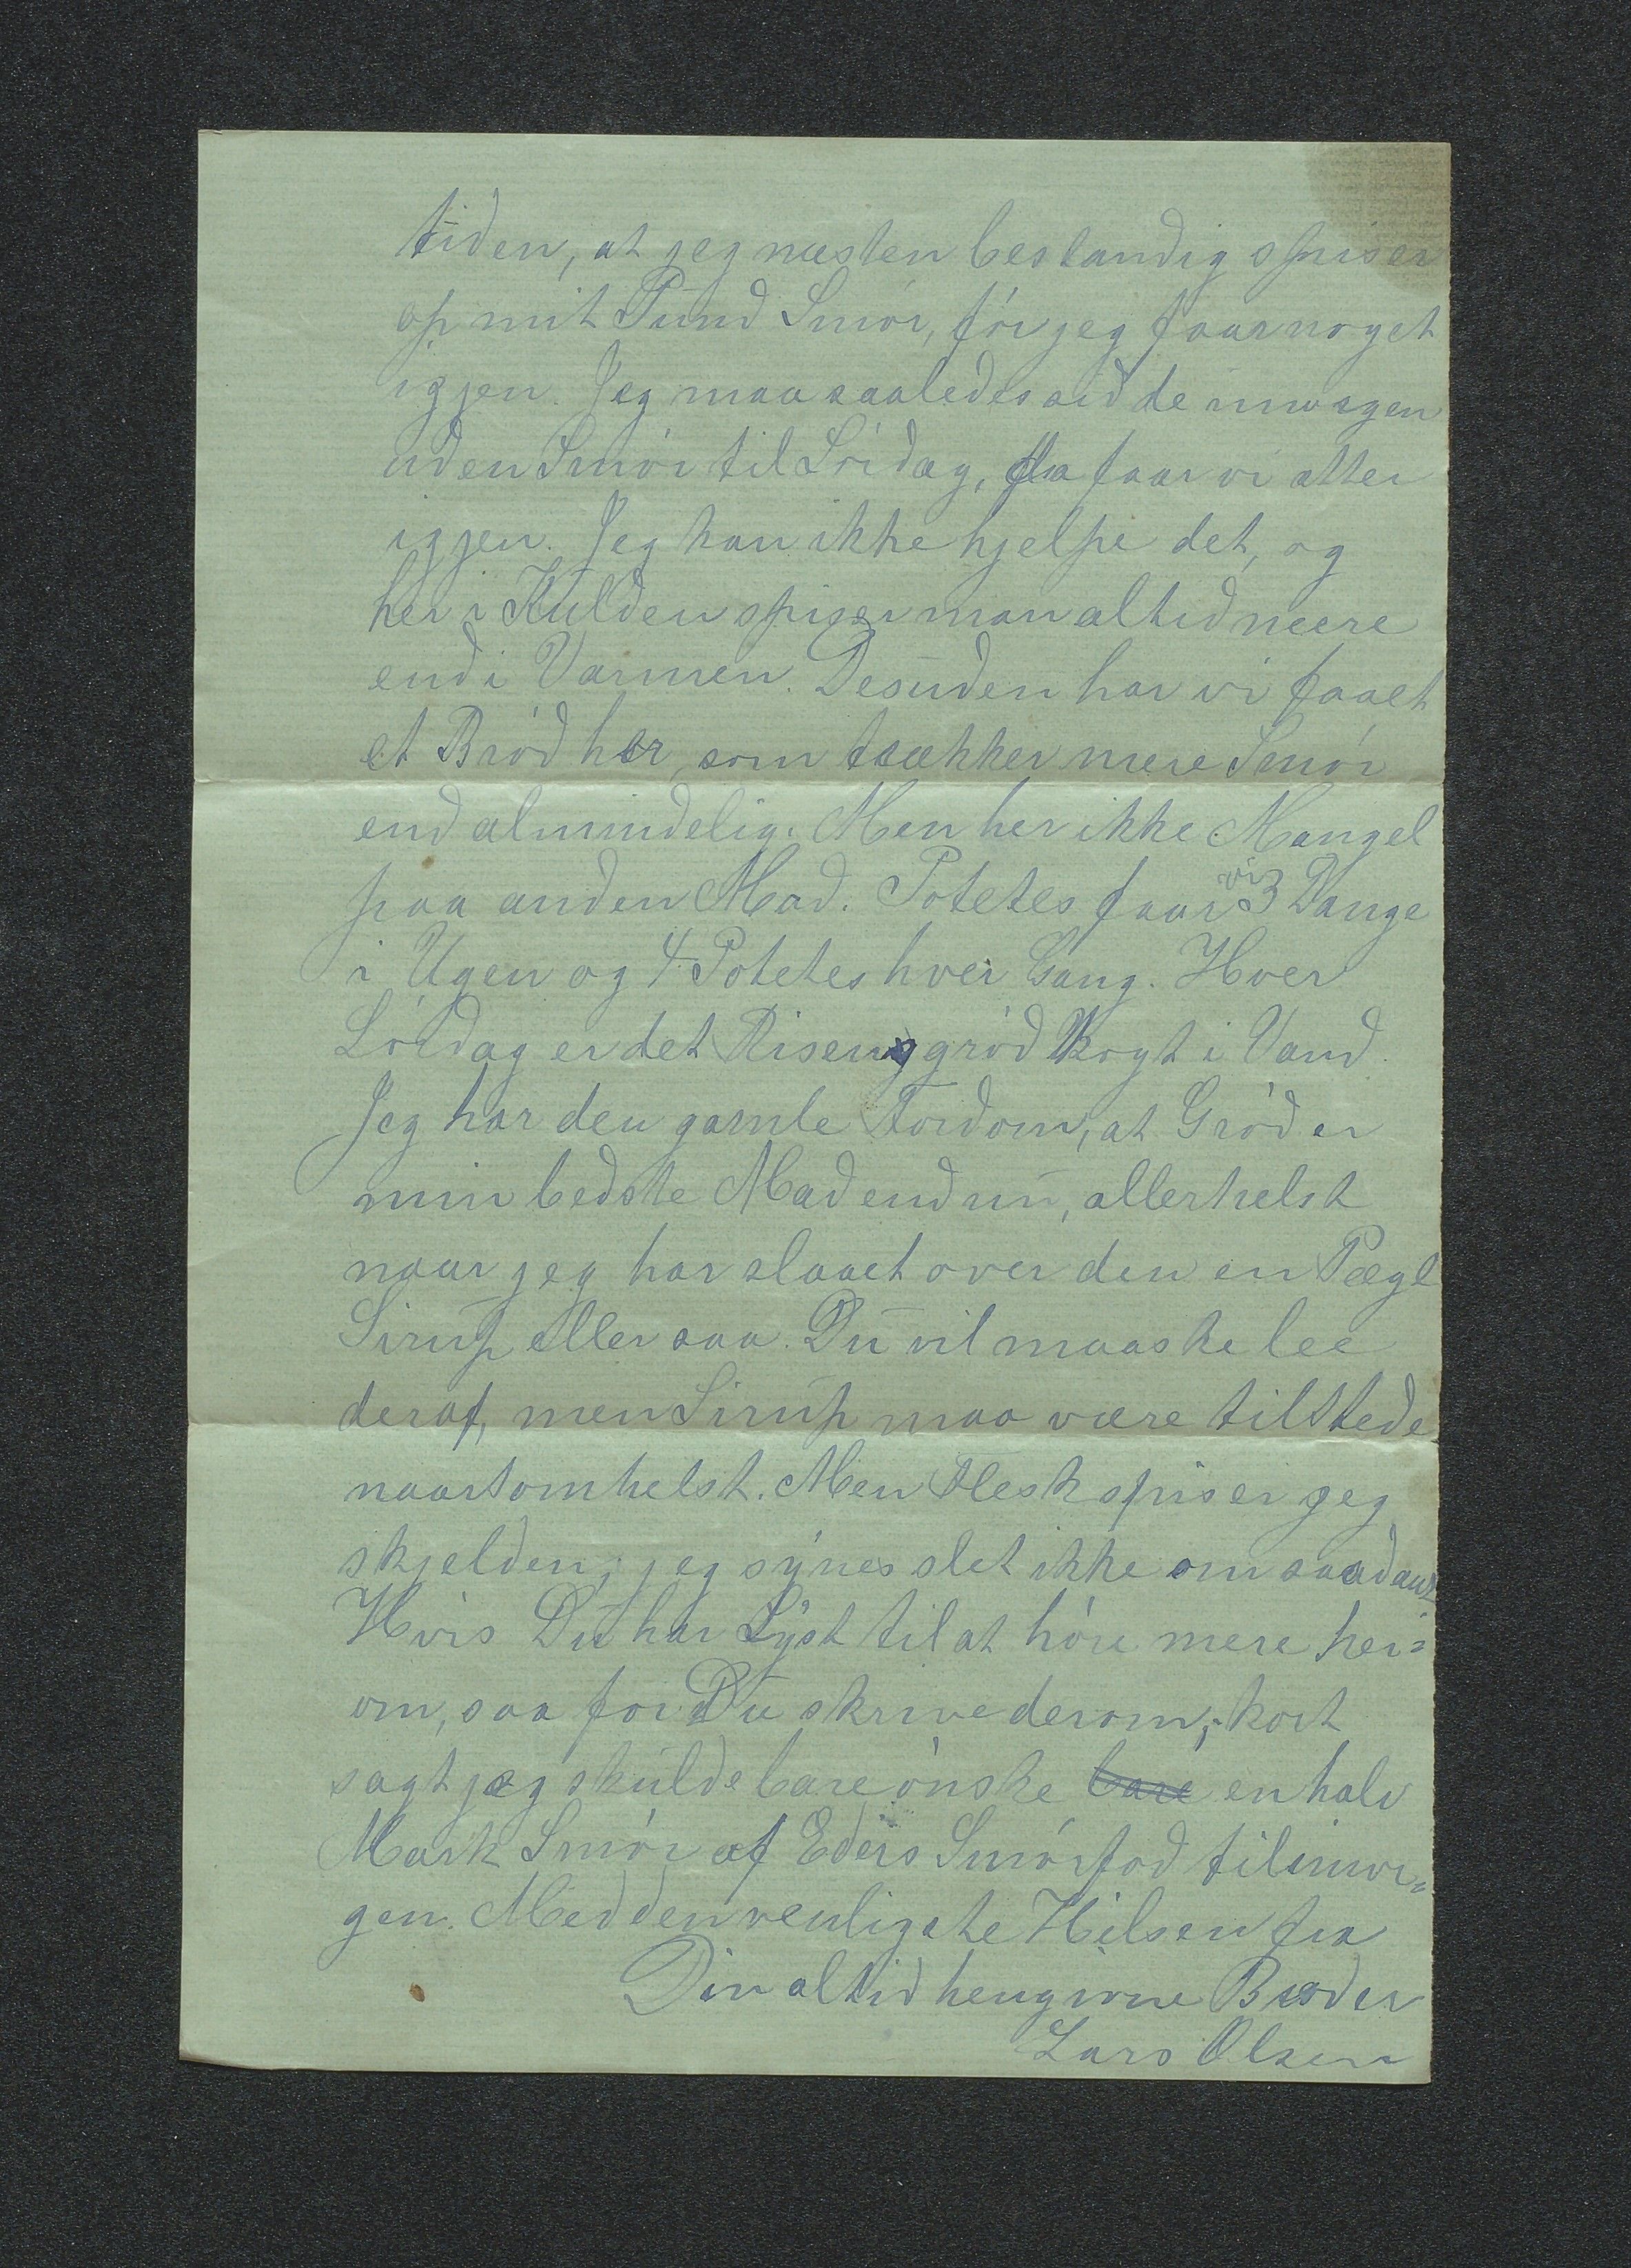 tiden, at jeg næsten bestandig spiser
op mit Pund Smór, fór jeg faar noget
igjen. Jeg maa saaledes sidde imorgen
uden Smór til Lórdag, da faar vi atter
igjen. Jeg kan ikke hjelpe det, og
her i Kulden spiser man altid meere
end i Varmen. Desuden har vi faaet
et Bród her, som trækker mere Smór
end almindelig. Men her ikke Mangel
paa anden Mad. Potetes faar vi 3 Gange
i Ugen og 4 Potetes hver Gang. Hver
Lórdag er det Risengród kogt i Vand.
Jeg har den gamle Fordom, at Gród er
min bedste Mad endnu, allerhelst
naar jeg har slaaet over den en Pægl
Sirup eller saa. Du vil maaske lee
deraf, men Sirup maa være tilstede
naarsomhelst. Men Flesk spiser jeg
skjelden; jeg synes slet ikke om saadant
Hvis Du har Lyst til at hóre mere her=
om, saa for Du skrive derom; kort
sagt jeg skulde bare ónske bare en halv
Mark Smór af Eders Smórfad tilimor=
gen. Med den venligste Hilsen fra
Din altid hengivne Broder
Lars Olsen